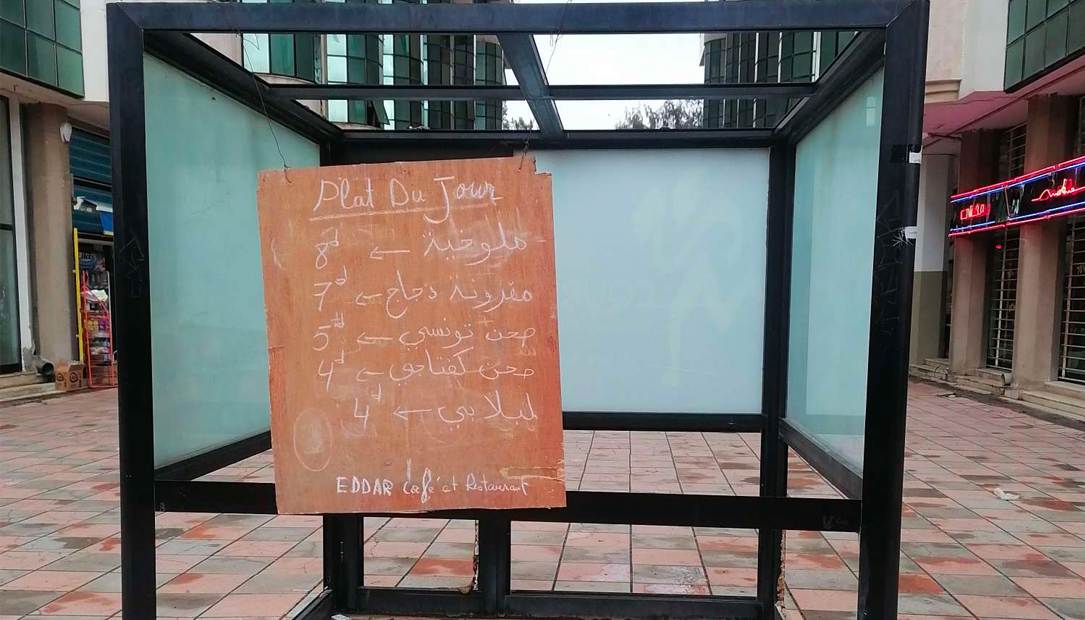 Plat Du Jour
ملوخية ← 8d
مقرونة دجاج ← 7d
صحن تونسي ← 5d
صحن كفتاجي ← 4d
لبلابي ← 4d
EDDAR Café et Restaurant